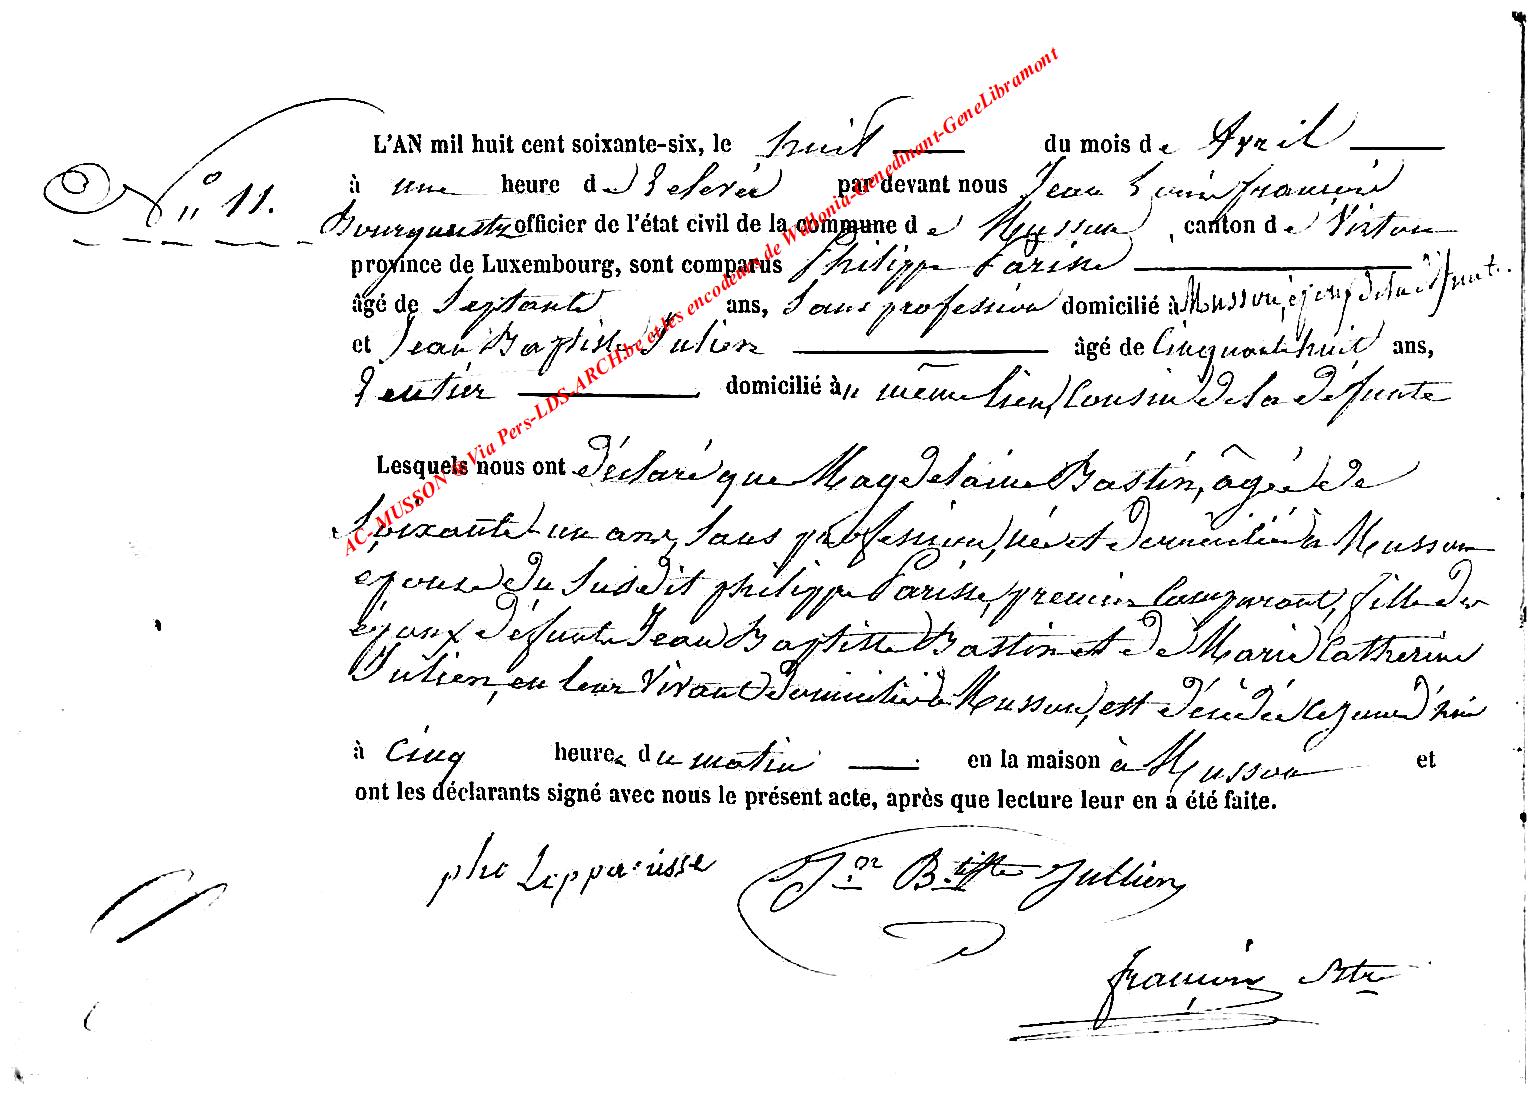 L'AN mil huit cent soixante-six, le huit du mois de Avril
N° 11.
à une heure de relevée par devant nous Jean Louis françois
Bourguestre officier de l'état civil de la commune de Musson, canton de Virton
province de Luxembourg, sont comparus Philippe Parisse
âgé de Septante ans, Sans profession domicilié à Musson, époux de la défunte.
et Jean Baptiste Julien âgé de Cinquante huit ans,
Rentier domicilié à même lieu, Cousin de la défunte
Lesquels nous ont déclaré que Magdelaine Bastin, âgée de
Soixante un ans, Sans profession, née et domiciliée à Musson
épouse du Susdit philippe Parisse, premier Comparant, fille des
époux défunts Jean Baptiste Bastin et de Marie Catherine
Julien, en leur vivant domiciliés à Musson, est décédée ce jourd'hui
à Cinq heures du matin en la maison à Musson et
ont les déclarants signé avec nous le présent acte, après que lecture leur en a été faite.
phi Lipparisse Jn Btiste Jullien
françois Btre
AC-MUSSON via Pers-LDS-ARCH.be et les encodeurs de Wallonia-Genedinant-GeneLibramont